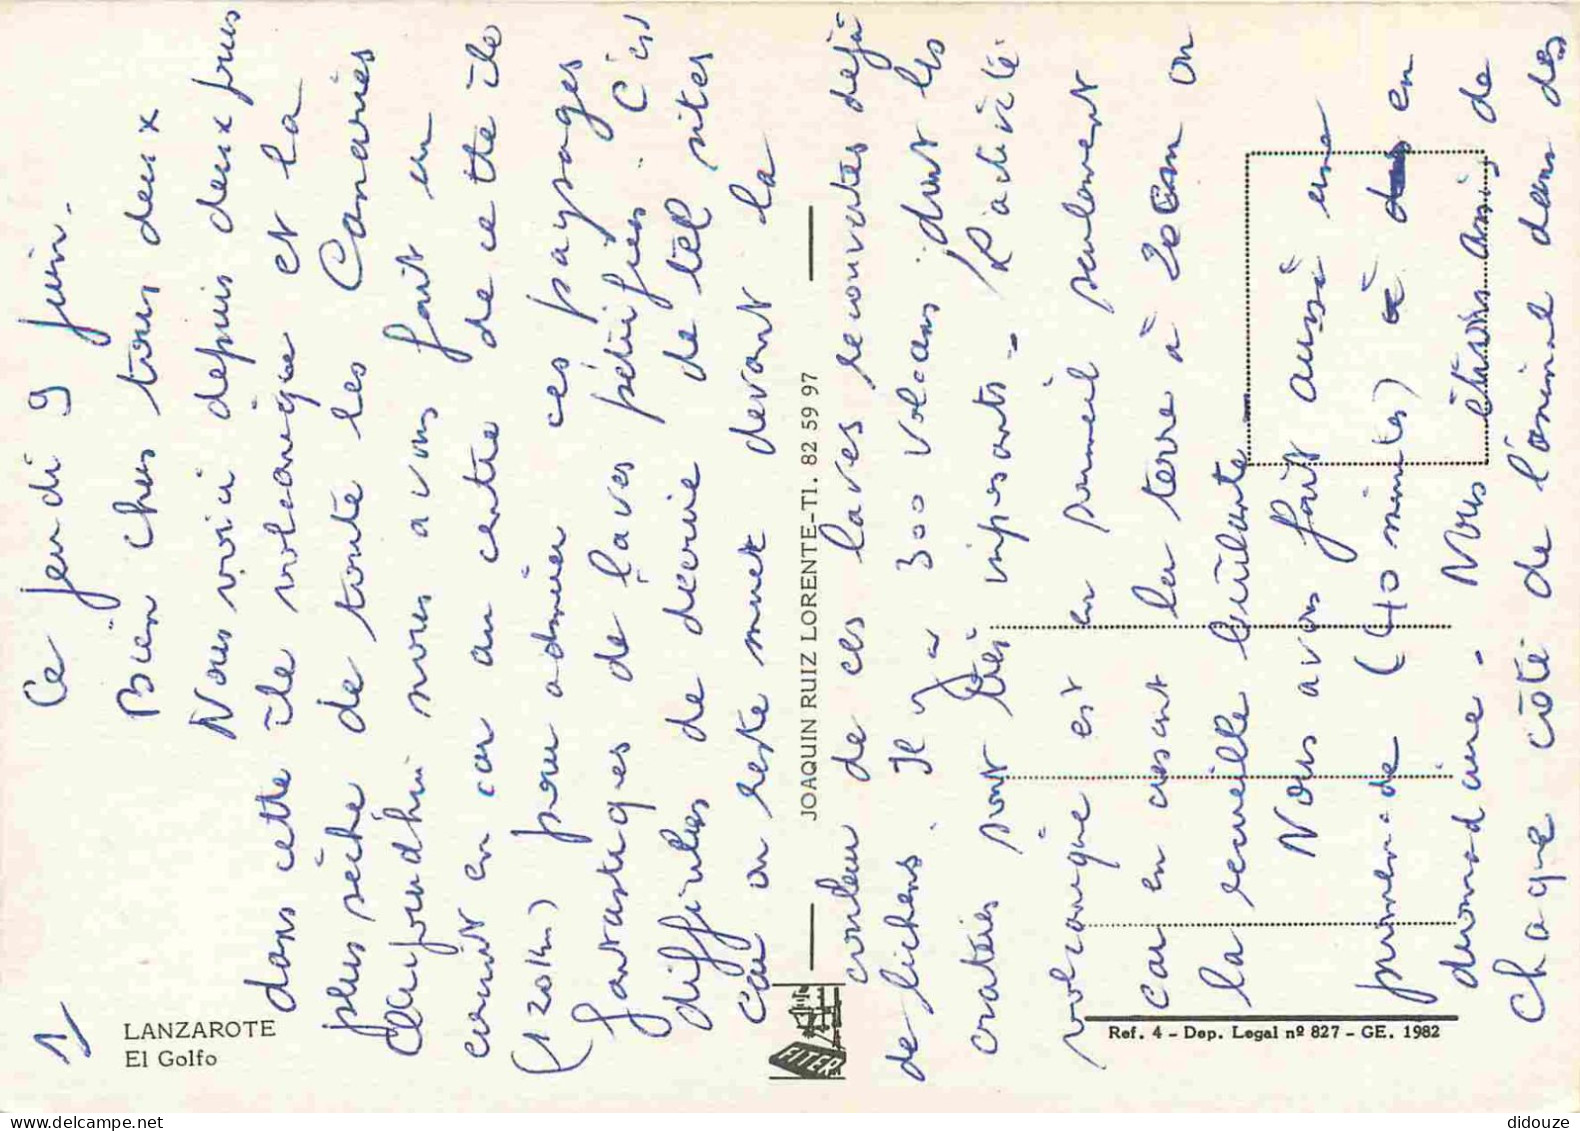 1
LANZAROTE
El Golfo
Ce jeudi 9 juin.
Bien chers tous deux
Nous voici depuis deux jours
dans cette île volcanique et la
plus sèche de toute les Canaries
Aujourdhui nous avons fait un
circuit en car au centre de cette île
(120km) pour admirer ces paysages
fantastiques de laves pétrifiées. C'est
difficile de décrire de tel sites
car on reste muet devant la
FITER
JOAQUIN RUIZ LORENTE-Tl. 82 59 97
couleur de ces laves recouvertes déjà
de lichens. Il y a 300 volcans dont les
cratères sont très imposants. L'activité
volcanique est en sommeil seulement
car en creusant la terre à 20cm on
la recueille brûlante.
Nous avons fait aussi une
promenade (40 minutes) à en
dromadaire. Nous étions assis de
chaque côté de l'animal dans des
Ref. 4 - Dep. Legal nº 827 - GE. 1982
didouze